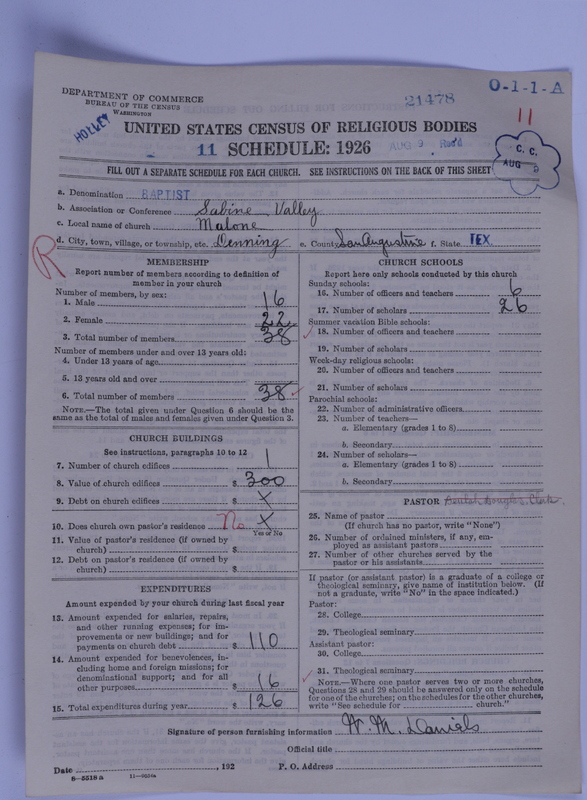 DEPARTMENT OF COMMERCE
BUREAU OF THE CENSUS
WASHINGTON
21478
O-1-1-A
HOLLEY
11
UNITED STATES CENSUS OF RELIGIOUS BODIES
11 SCHEDULE: 1926 AUG 9 Rec'd
C. C.
AUG 9
FILL OUT A SEPARATE SCHEDULE FOR EACH CHURCH. SEE INSTRUCTIONS ON THE BACK OF THIS SHEET
a. Denomination BAPTIST
b. Association or Conference Sabine Valley
c. Local name of church Malone
R
d. City, town, village, or township, etc. Denning e. County San Augustine f. State TEX
MEMBERSHIP
Report number of members according to definition of
member in your church
Number of members, by sex:
1. Male 16
2. Female 22
3. Total number of members 38
Number of members under and over 13 years old:
4. Under 13 years of age
5. 13 years old and over
6. Total number of members 38
NOTE.—The total given under Question 6 should be the
same as the total of males and females given under Question 3.
CHURCH BUILDINGS
See instructions, paragraphs 10 to 12
7. Number of church edifices 1
8. Value of church edifices $ 300
9. Debt on church edifices $ X
10. Does church own pastor's residence No X
Yes or No
11. Value of pastor's residence (if owned by
church) $
12. Debt on pastor's residence (if owned by
church) $
EXPENDITURES
Amount expended by your church during last fiscal year
13. Amount expended for salaries, repairs,
and other running expenses; for im-
provements or new buildings; and for
payments on church debt $ 110
14. Amount expended for benevolences, in-
cluding home and foreign missions; for
denominational support; and for all
other purposes $ 16
15. Total expenditures during year $ 126
CHURCH SCHOOLS
Report here only schools conducted by this church
Sunday schools:
16. Number of officers and teachers 6
17. Number of scholars 26
Summer vacation Bible schools:
18. Number of officers and teachers
19. Number of scholars
Week-day religious schools:
20. Number of officers and teachers
21. Number of scholars
Parochial schools:
22. Number of administrative officers
23. Number of teachers—
a. Elementary (grades 1 to 8)
b. Secondary
24. Number of scholars—
a. Elementary (grades 1 to 8)
b. Secondary
PASTOR Clerk
25. Name of pastor
(If church has no pastor, write "None")
26. Number of ordained ministers, if any, em-
ployed as assistant pastors
27. Number of other churches served by the
pastor or his assistants
If pastor (or assistant pastor) is a graduate of a college or
theological seminary, give name of institution below. (If
not a graduate, write "No" in the space indicated.)
Pastor:
28. College
29. Theological seminary
Assistant pastor:
30. College
31. Theological seminary
NOTE.—Where one pastor serves two or more churches,
Questions 28 and 29 should be answered only on the schedule
for one of the churches; on the schedules for the other churches,
write "See schedule for church."
Signature of person furnishing information W. M. Daniels
Official title
Date , 192 P. O. Address
8-5518 a 11-9034a